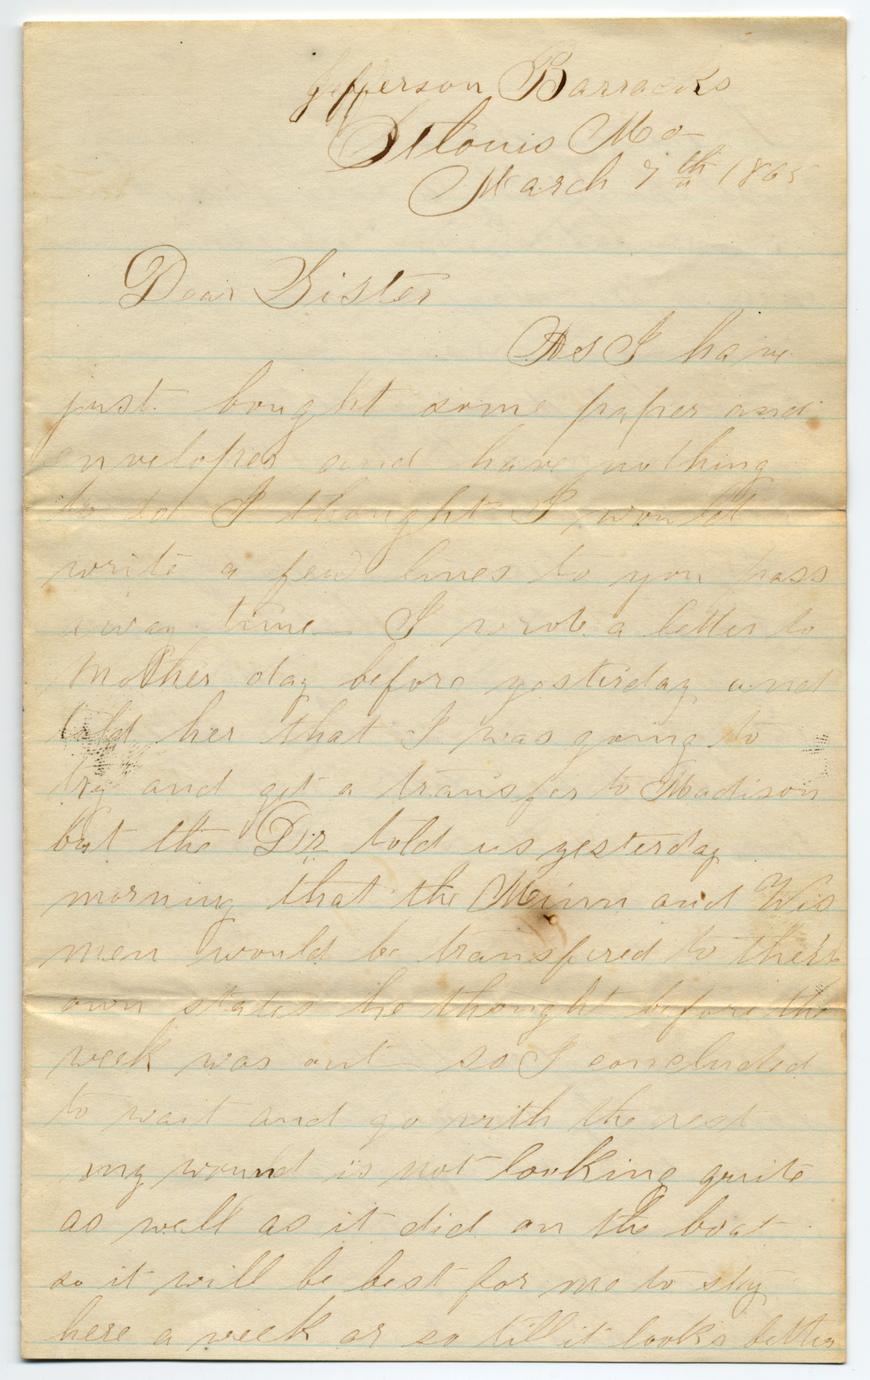 Jefferson Barracks
St Louis Mo
March 7th 1865
Dear Sister
As I have
just bought some paper and
envelopes and have nothing
to do I thought I would
write a few lines to you pass
away time I wrote a letter to
Mother day before yesterday and
told her that I was going to
try and get a transfer to Madison
but the Dr told us yesterday
morning that the Minn and Wis
men would be transfered to their
own states he thought before the
week was out so I concluded
to wait and go with the rest
my wound is not looking quite
as well as it did on the boat
so it will be best for me to stay
here a week or so till it looks better